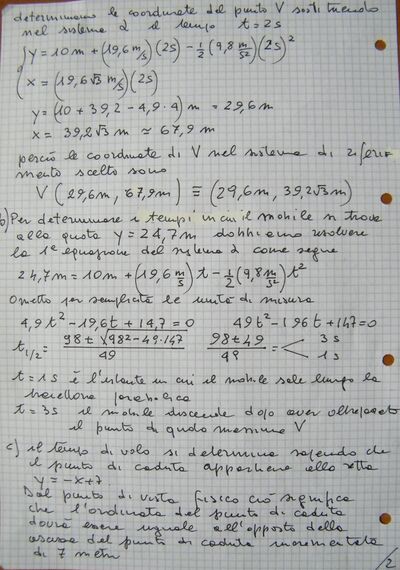 determiniamo le coordinate del punto V sostituendo
nel sistema 2 il tempo t = 2s
y = 10m + (19,6 m/s)(2s) - 1/2 (9,8 m/s²)(2s)²
x = (19,6√3 m/s)(2s)
y = (10 + 39,2 - 4,9·4) m = 29,6m
x = 39,2√3 m ≃ 67,9 m
perciò le coordinate di V nel sistema di riferi-
mento scelto sono
V (29,6m, 67,9m) ≡ (29,6m, 39,2√3m)
b) Per determinare i tempi in cui il mobile si trova
alla quota y = 24,7m dobbiamo risolvere
la 1ª equazione del sistema 2 come segue
24,7m = 10m + (19,6 m/s) t - 1/2 (9,8 m/s²) t²
Ometto per semplicità le unità di misura
4,9t² - 19,6t + 14,7 = 0 49t² - 196t + 147 = 0
t1/2 = (98 ± √(98² - 49·147))/49 (98 ± 49)/49 = 3s
1s
t = 1s è l'istante in cui il mobile sale lungo la
traiettoria parabolica
t = 3s il mobile discende dopo aver oltrepassato
il punto di quota massima V
c) il tempo di volo si determina sapendo che
il punto di caduta appartiene alla retta
y = -x+7
Dal punto di vista fisico ciò significa
che l'ordinata del punto di caduta
dovrà essere uguale all'opposto della
ascissa del punto di caduta incrementata
di 7 metri
/2